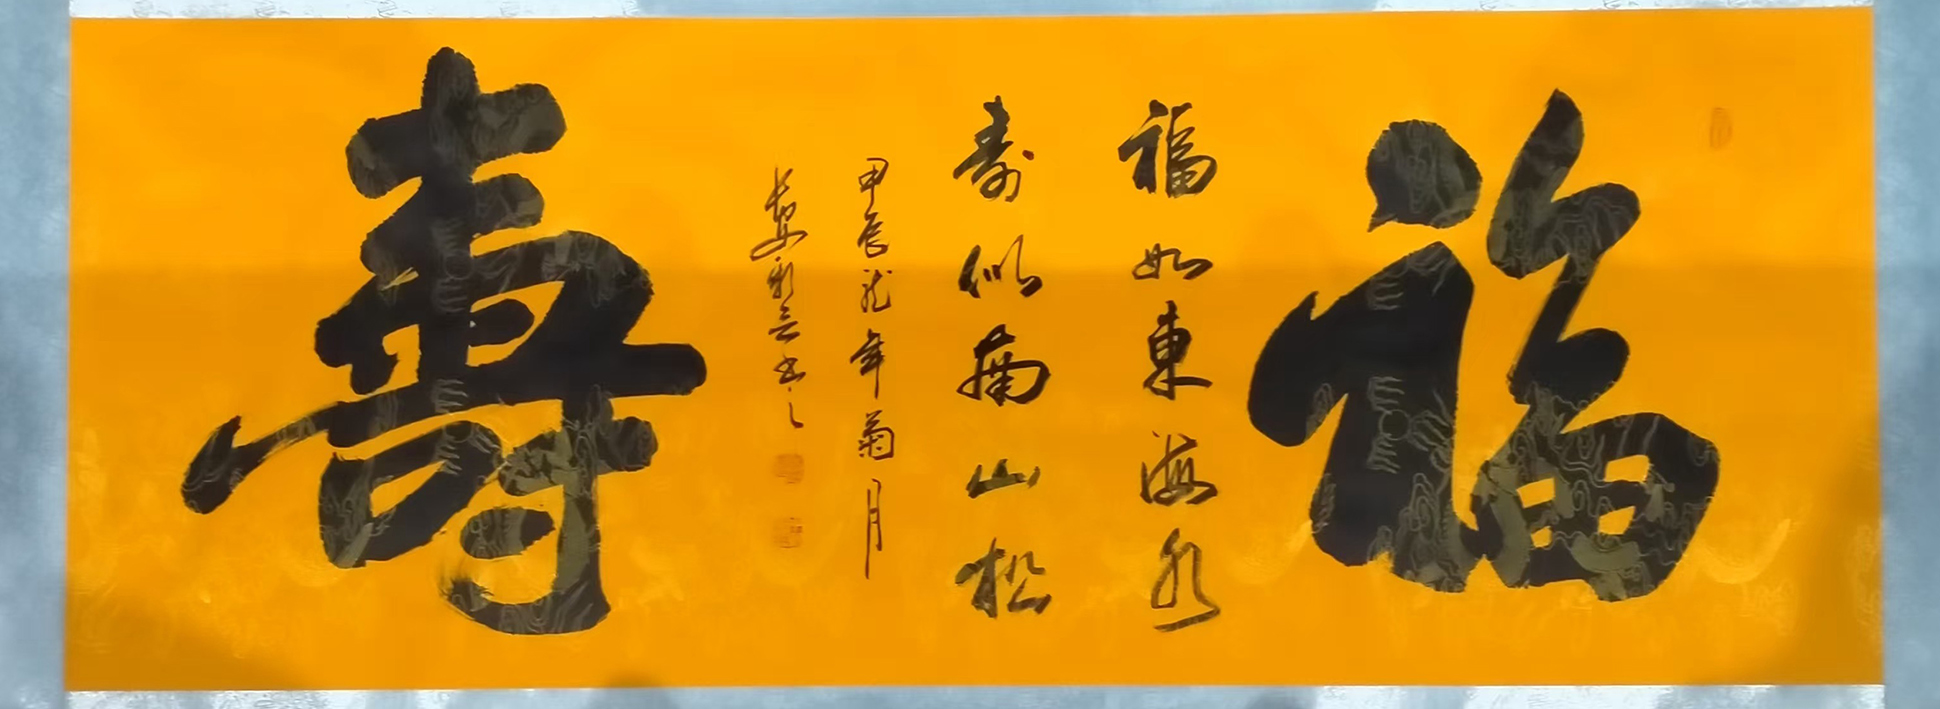 福
福如東海水
壽似南山松
甲辰龙年菊月
書之
壽